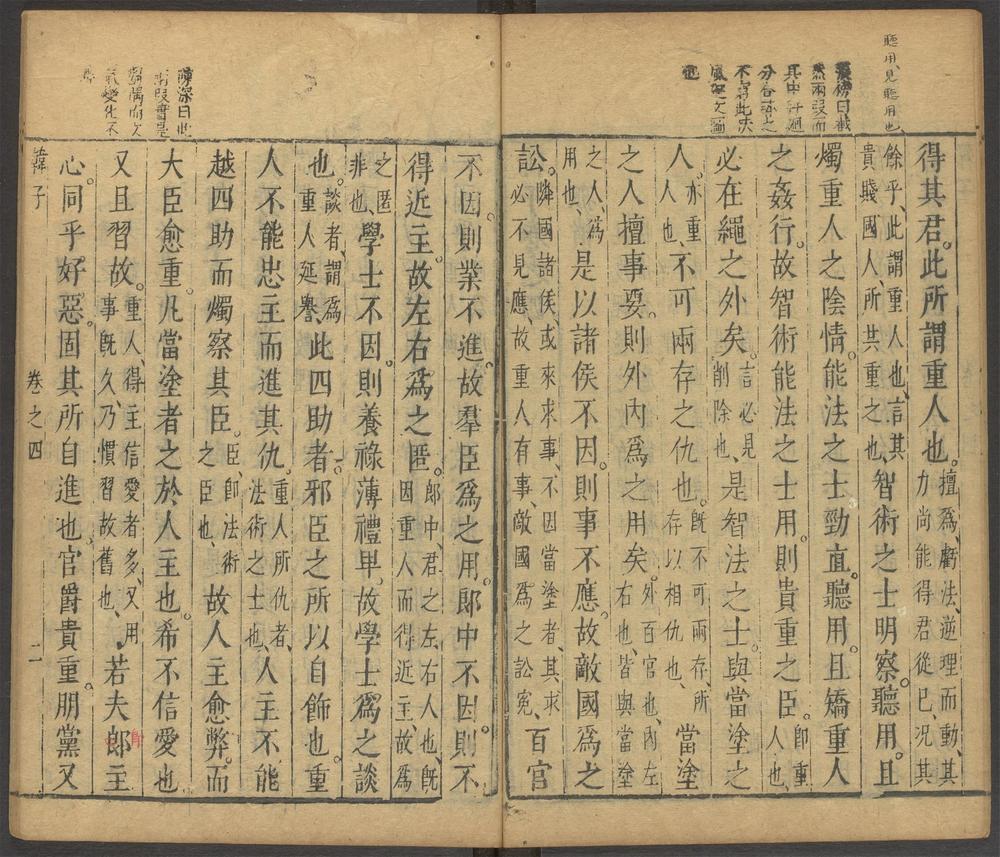 聽用見聽用也
得其君此所謂重人也擅爲虧法逆理而動其力尚能得君從已况其
餘乎此謂重人也言其貴賤國人所共重之也智術之士明察聽用且
燭重人之陰情能法之士勁直聽用且矯重人
之姦行故智術能法之士用則貴重之臣即重人也
必在繩之外矣言必見削除也是智法之士與當塗之
人亦重人也不可兩存之仇也既不可兩存所存以相仇也當塗
之人擅事要則外內爲之用矣外百官也內左右也皆與當塗
之人爲用也是以諸侯不因則事不應故敵國爲之
訟隣國諸侯或來求事不因當塗者其求必不見應故重人有事敵國爲之訟寃百官
不因則業不進故羣臣爲之用郞中不因則不
得近主故左右爲之匿郞中君之左右人也既因重人而得近主故爲
之匿非也學士不因則養祿薄禮卑故學士爲之談
也談者謂爲重人延譽此四助者邪臣之所以自飾也重
人不能忠主而進其仇重人所仇者法術之士也人主不能
越四助而燭察其臣臣卽法術之臣也故人主愈弊而
大臣愈重凡當塗者之於人主也希不信愛也
又且習故重人得主信愛者多又用事既久乃慣習故舊也若夫郞主
心同乎好惡固其所自進也官爵貴重朋黨又
韓子
卷之四
二